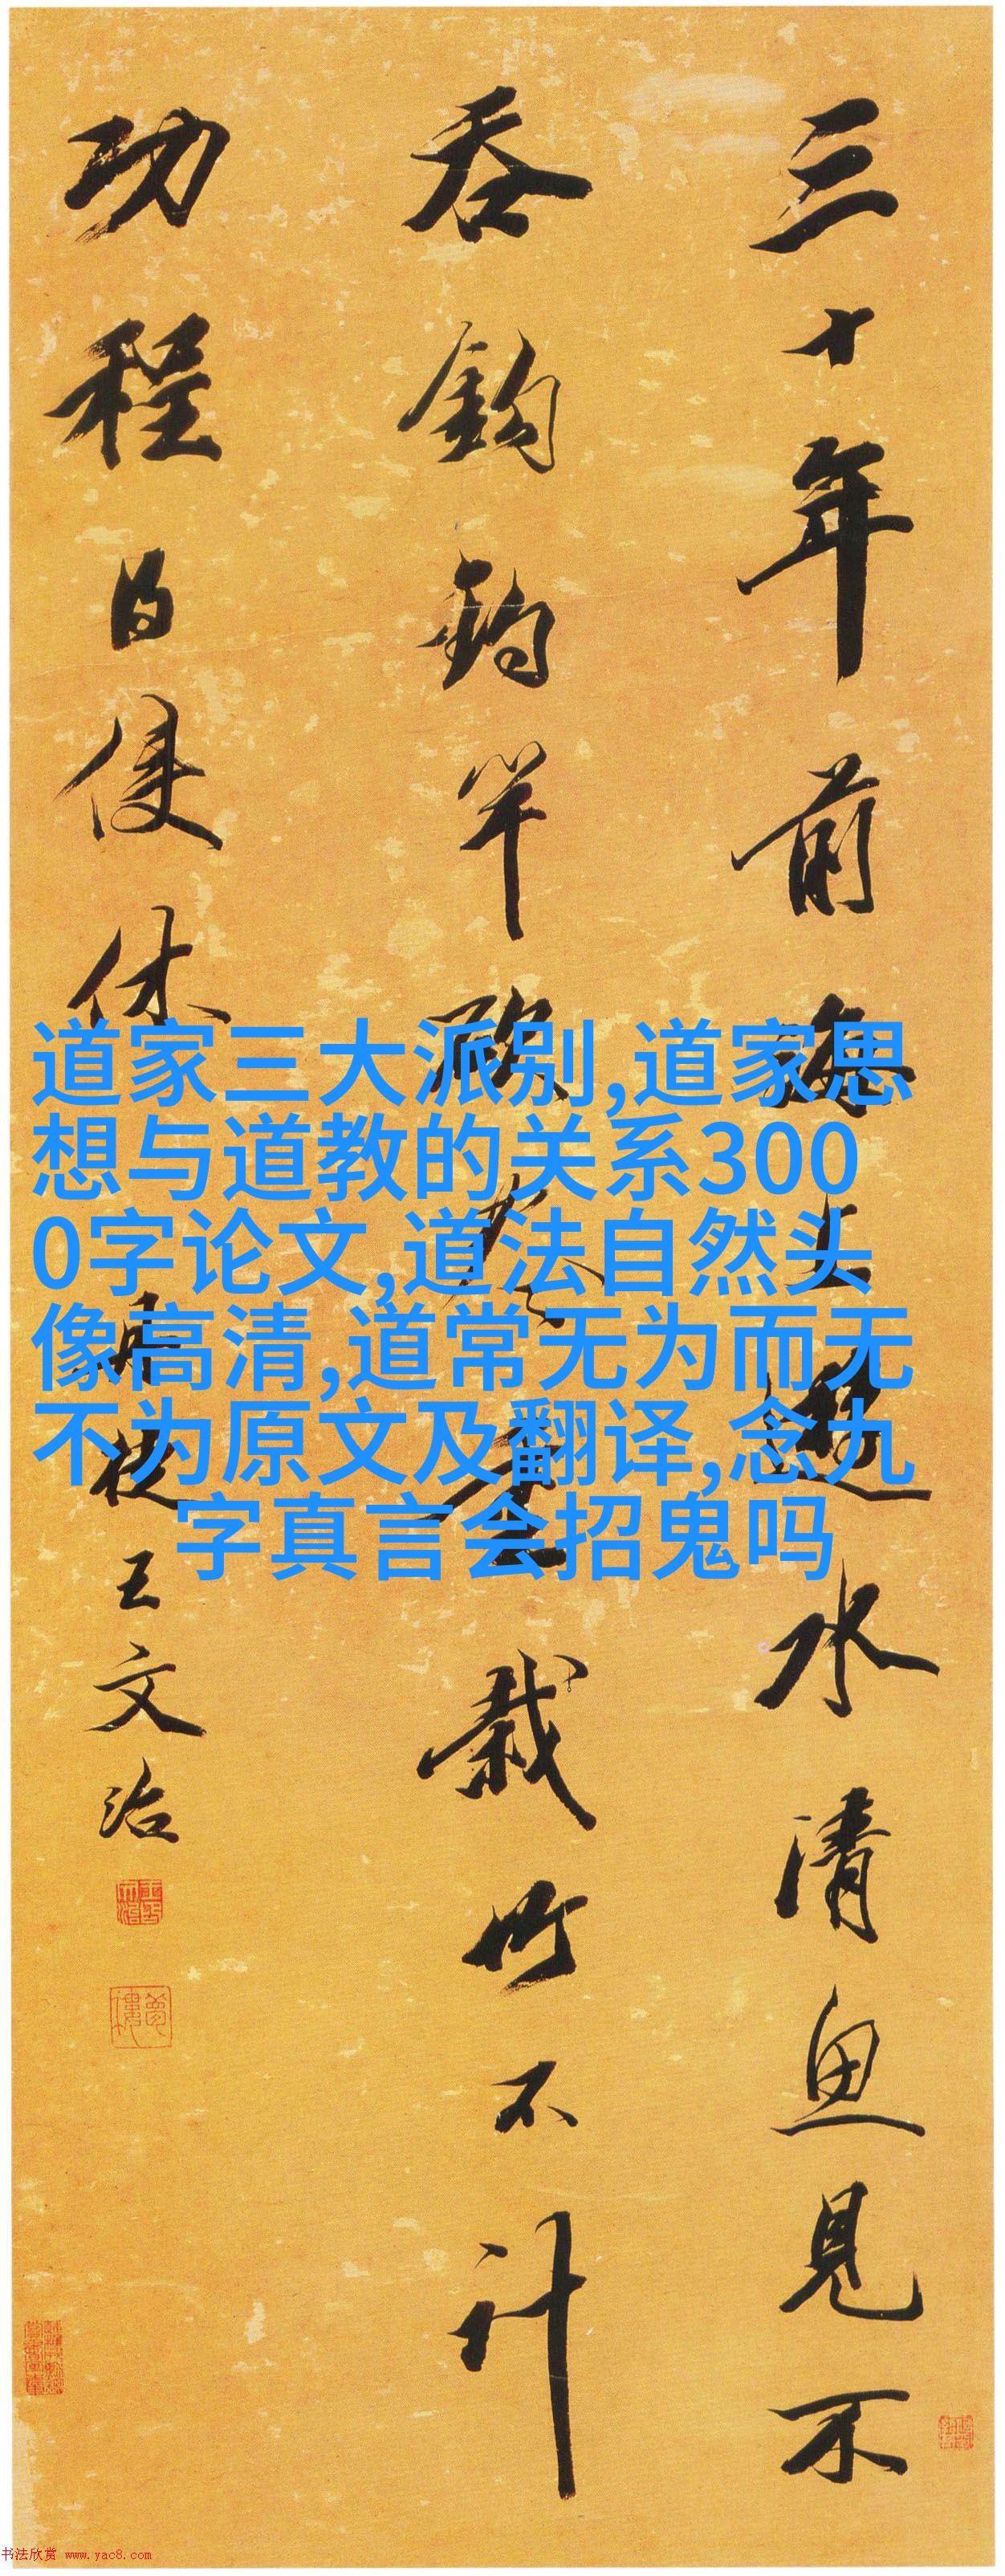 三十年前海上遊水清魚見不
吞鈎釣竿斫盡重栽竹不計
功程得便休
王文治
道家三大派别,道家思
想与道教的关系300
0字论文,道法自然头
像高清,道常无为而无
不为原文及翻译,念九
字真言会招鬼吗
书法欣赏 www.yac8.com